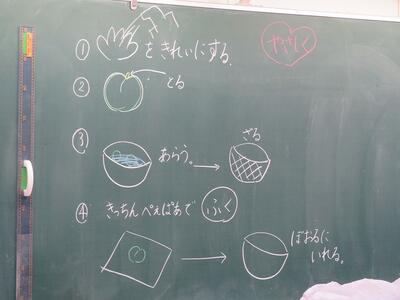 ① をきれいにする。
やさしく
② とる
③ あらう。
ざる
④ きっちんぺえぱあで ふく
ぼおるに
いれる。